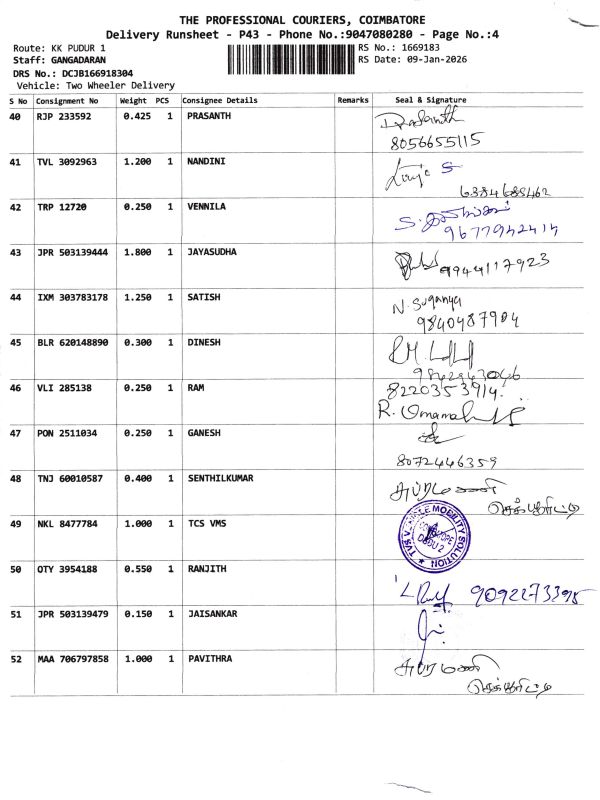 THE PROFESSIONAL COURIERS, COIMBATORE
Delivery Runsheet - P43 - Phone No.:9047080280 - Page No.:4
Route: KK PUDUR 1
RS No.: 1669183
Staff: GANGADARAN
RS Date: 09-Jan-2026
DRS No.: DCJB166918304
Vehicle: Two Wheeler Delivery
S No Consignment No Weight PCS Consignee Details Remarks Seal & Signature
40 RJP 233592 0.425 1 PRASANTH Prasanth
8056655115
41 TVL 3092963 1.200 1 NANDINI
6384688462
42 TRP 12720 0.250 1 VENNILA
9677942414
43 JPR 503139444 1.800 1 JAYASUDHA 9944117923
44 IXM 303783178 1.250 1 SATISH N. Suganya
9840487904
45 BLR 620148890 0.300 1 DINESH
46 VLI 285138 0.250 1 RAM 8220353914.
47 PON 2511034 0.250 1 GANESH
8072446359
48 TNJ 60010587 0.400 1 SENTHILKUMAR
செக்யூரிட்டி
49 NKL 8477784 1.000 1 TCS VMS
50 OTY 3954188 0.550 1 RANJITH 9092273395
51 JPR 503139479 0.150 1 JAISANKAR
52 MAA 706797858 1.000 1 PAVITHRA
செக்யூரிட்டி